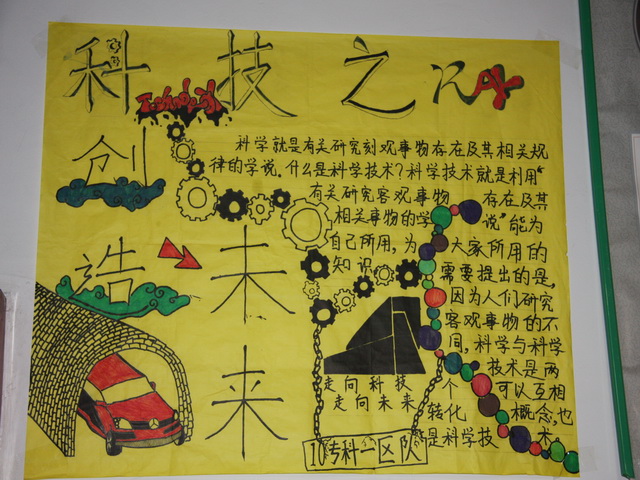 科技之
创造
未来
科学就是有关研究刻观事物存在及其相关规
律的学说,什么是科学技术?科学技术就是利用“
有关研究客观事物 存在及其
相关事物的学 说”能为
自己所用,为 大家所用的
知识 需要提出的是,
因为人们研究
客观事物的不
同,科学与科学
技术是两
个 可以互相
转化 概念,也
是科学技 术
走向科技
走向未来
10专科一区队